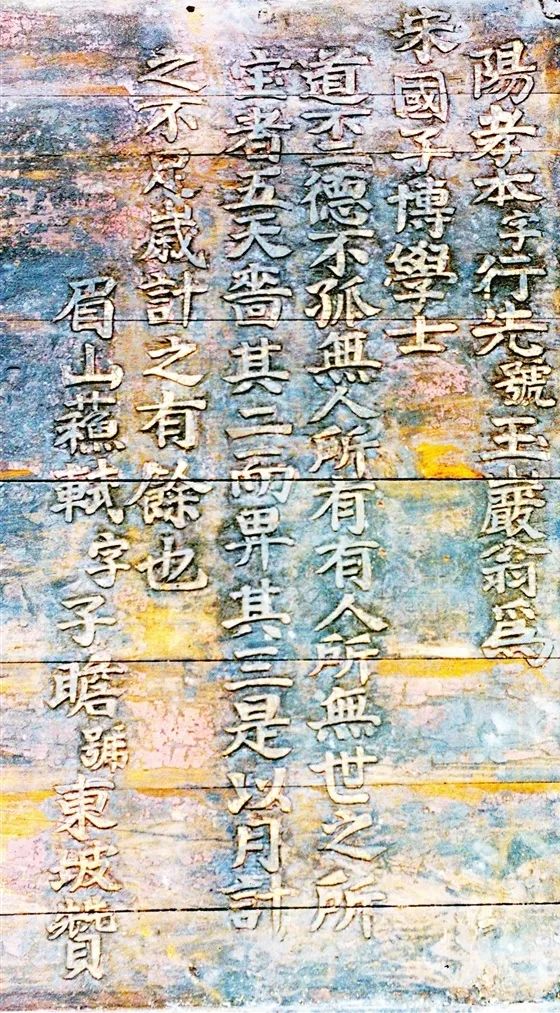 陽孝本字行先號玉巖翁爲
宋國子博學士
道不二德不孤無人所有有人所無世之所
宝者五天嗇其二而畀其三是以月計
之不足歲計之有餘也
眉山蘓軾字子瞻號東坡贊